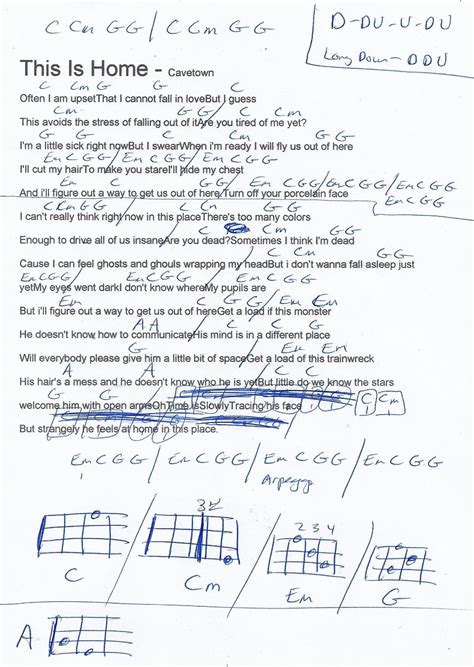 C Cm G G / C Cm G G
D-DU-U-DU
Long Down - DDU
This Is Home - Cavetown
C Cm G G C
Often I am upsetThat I cannot fall in loveBut I guess
Cm G G C Cm
This avoids the stress of falling out of itAre you tired of me yet?
G G C Cm G G
I'm a little sick right nowBut I swearWhen i'm ready I will fly us out of here
Em C G G / Em C G G / Em C G G
I'll cut my hairTo make you stareI'll hide my chest
Em C G G / Em C G G / Em C G G
And i'll figure out a way to get us out of here/Turn off your porcelain face
C Cm G G C Cm G G
I can't really think right now in this placeThere's too many colors
C Cm G G
Enough to drive all of us insaneAre you dead?Sometimes I think I'm dead
C Cm G G
Cause I can feel ghosts and ghouls wrapping my headBut i don't wanna fall asleep just
Em C G G / Em C G G Em C G G
yetMy eyes went darkI don't know whereMy pupils are
Em C G G / Em Em
But i'll figure out a way to get us out of hereGet a load if this monster
A A C C G
He doesn't know how to communicateHis mind is in a different place
G Em Em
Will everybody please give him a little bit of spaceGet a load of this trainwreck
A A C C G G
His hair's a mess and he doesn't know who he is yetBut little do we know the stars
welcome him with open armsOhTime isSlowlyTracing his face
But strangely he feels at home in this place.
Em C G G / Em C G G / Em C G G / Em C G G
Arpegg
C
Cm
2 3 4
Em
G
A